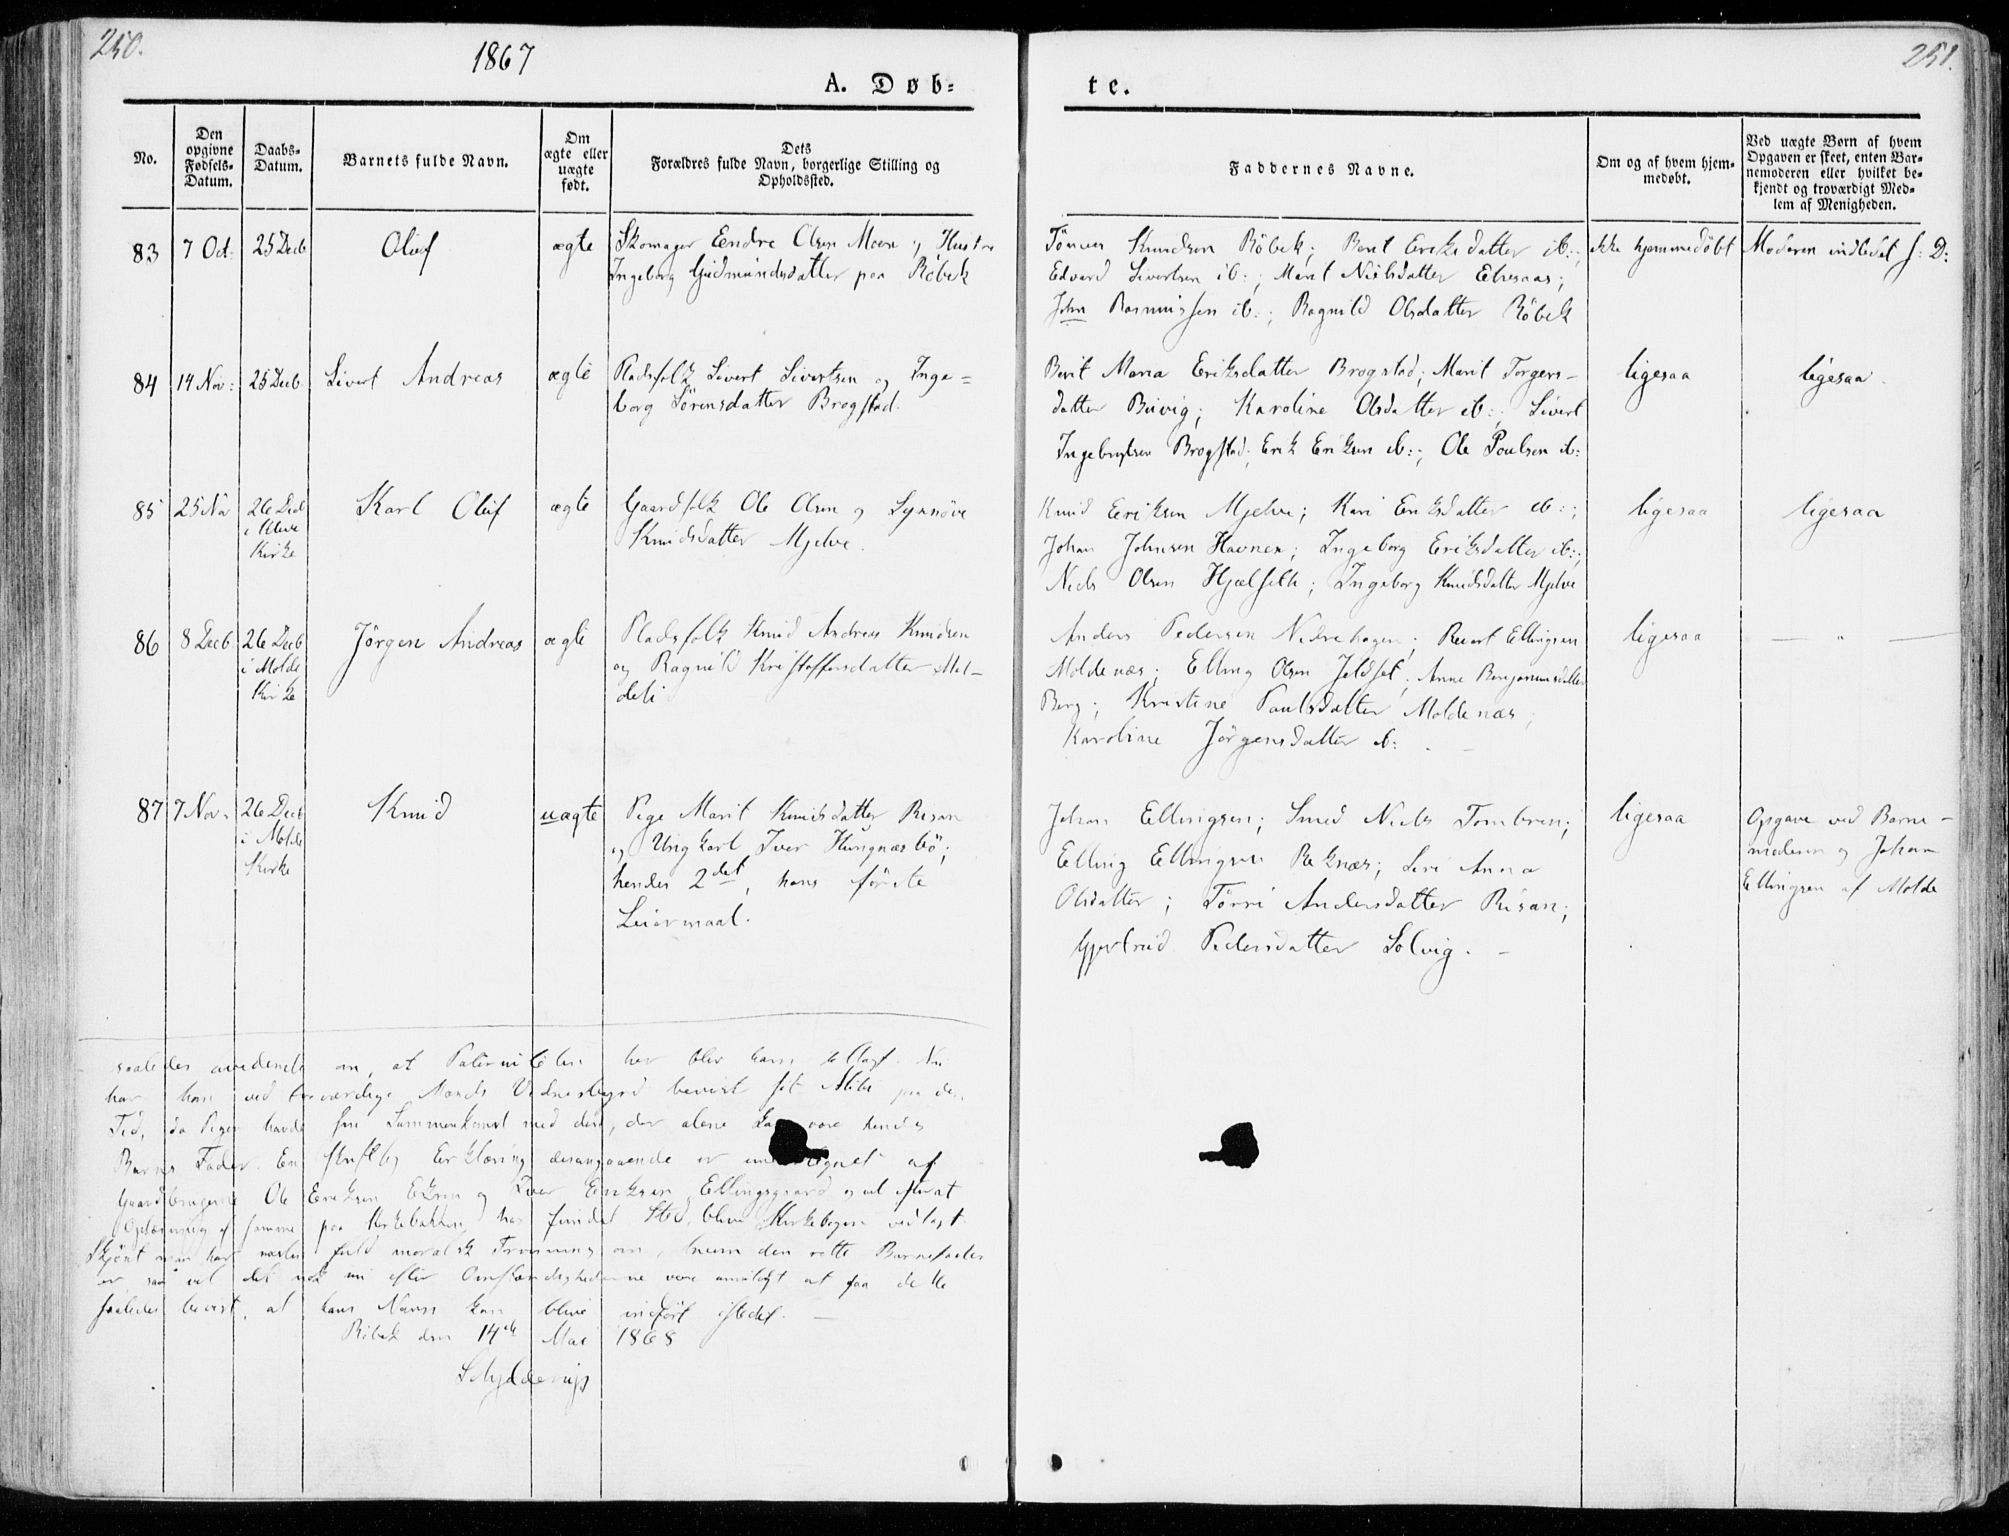 250.
1867
251.
A. Døb=
te.
No.
Den opgivne Fødsels-Datum.
Daabs-Datum.
Barnets fulde Navn.
Om ægte eller uægte født.
Dets
Forældres fulde Navn, borgerlige Stilling og
Opholdssted.
Faddernes Navne.
Om og af hvem hjem-
medøbt.
Ved uægte Børn af hvem
Opgaven er skeet, enten Bar-
nemoderen eller hvilket be-
kjendt og troværdigt Med-
lem af Menigheden.
83 7 Oct: 25 Decb Oluf ægte
Skomager Endre Olsen Moen og Hustru
Ingeborg Gudmundsdatter paa Röbek
Knudsen Röbek; Berit Eriksdatter ib:;
Edvard Sivertsen ib:; Marit Nielsdatter
John Rasmussen ib:; Ragnild Olsdatter Röbek
ikke hjemmedöbt
Moderen indledet f: D:
84 14 Nov: 25 Decb Sivert Andreas ægte
Pladsfolk Sivert Sivertsen og Inge=
borg Sörensdatter Brogstad.
Berit Maria Eriksdatter Brogstad; Marit Torgers-
datter Buvig; Karoline Olsdatter ib:; Sivert
Ingebrigtsen Brogstad; Erik Eriksen ib:; Ole Poulsen ib:
ligesaa
ligesaa.
85 25 Nov 26 Decb
i Kleve
Kirke
Karl Oluf ægte
Gaardfolk Ole Olsen og Synnöve
Knudsdatter Mjelve.
Knud Eriksen Mjelve; Kari Eriksdatter ib:;
Johan Johnsen Havnen; Ingeborg Eriksdatter ib:;
Niels Olsen Hjelset; Ingeborg Knudsdatter Mjelve
ligesaa
ligesaa
86 8 Decb 26 Decb
i Molde
Kirke
Jörgen Andreas ægte
Pladsfolk Knud Andreas Knudsen
og Ragnild Kristoffersdatter Mol-
deli
Anders Pedersen Nedrehagen; Ellingsen
Moldenæs; Elling Olsen; Anne Benjaminsdatter
Berg; Kristine Paulsdatter Moldenæs;
Karoline Jörgensdatter ib:
ligesaa
— " —
87 7 Nov. 26 Decb
i Molde
Kirke
Knud uægte
Pige Marit Knudsdatter Risan
og Ungkarl Iver Hungnæs bö;
hendes 2det, hans förste
Leiermaal.
Johan Ellingsen; Smed Niels Tombren;
Elling Ellingsen Reknæs; Siri Anna
Olsdatter; Törri Andersdatter Risan;
Gjertrud Pedersdatter Solvig. -
ligesaa
Opgave ved Barne-
moderen og Johan
Ellingsen af Molde
saaledes om, at Paterniteten her blev ham tillagt. Nu
har han ved troværdige Mænds Vidnesbyrd bevist sit Alibi paa den
Tid, da Pigen havde sin Sammenkomst med den, der alene kan være hendes
Barns Fader. En skriftlig Erklæring desangaaende er undertegnet af
Gaardbrugerne Ole Eriksen og Iver Eriksen Ellingsgaard og vil efterat
Oplæsning af samme paa Kirkebakken har fundet Sted, blive Kirkebogen vedlagt
Skjönt man har næsten fuld moralsk om, hvem den rette Barnefader
er, saa vil det nok nu efter Omstændighederne være umuligt at faa dette
saaledes bevist, at hans Navn kan blive indfört istedet. —
Röbek den 14de Mai 1868
Schjelderup